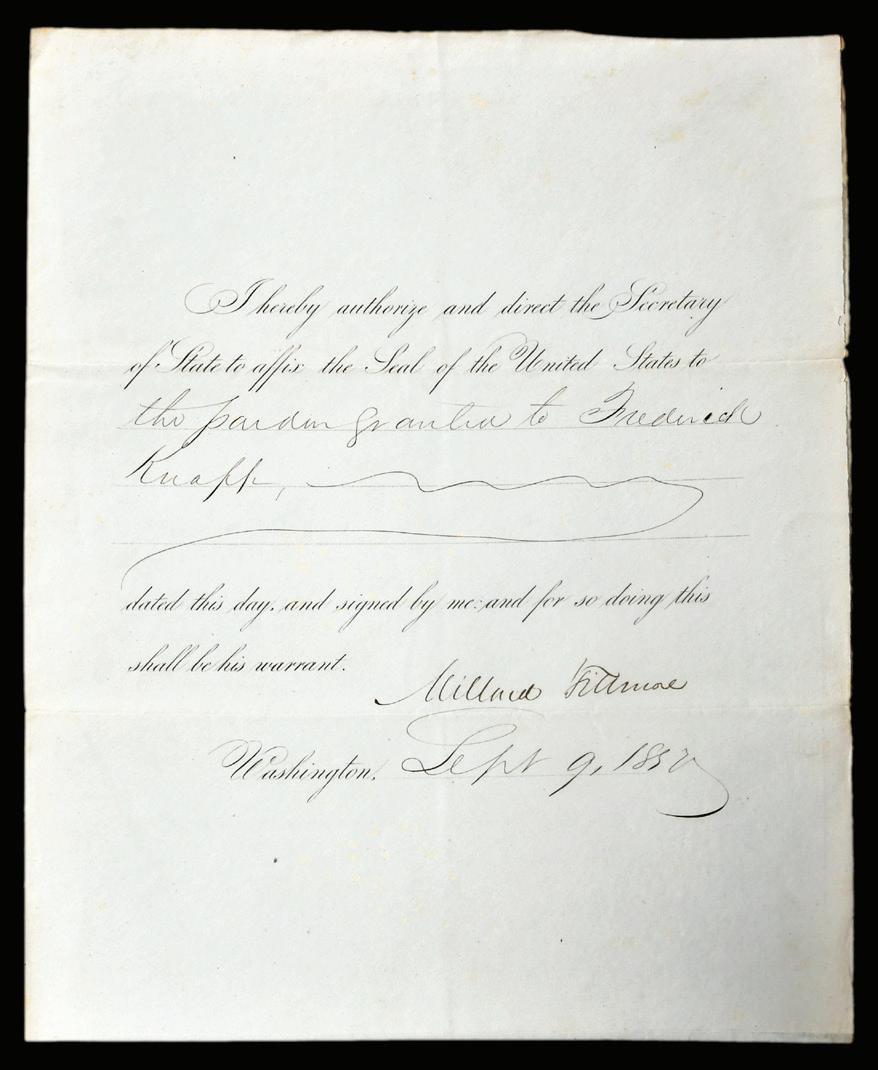 I hereby authorize and direct the Secretary
of State to affix the Seal of the United States to
the pardon granted to Frederick
Knapp,
dated this day, and signed by me: and for so doing this
shall be his warrant.
Millard Fillmore
Washington, Sept 9, 1852